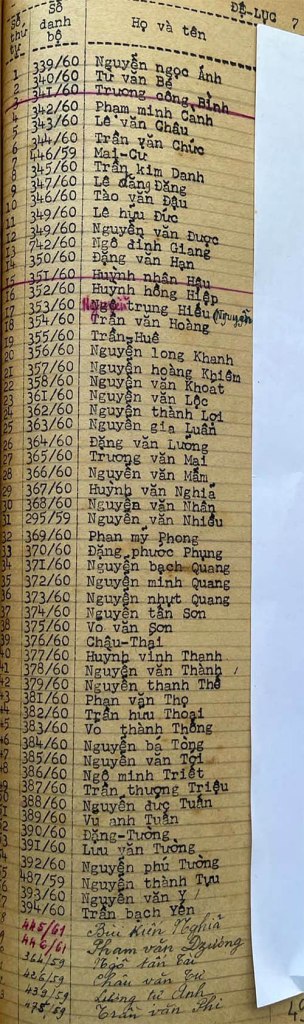 ĐỆ-LỤC 7
Số thứ tự Số danh bộ Họ và tên
1 339/60 Nguyễn ngọc Ánh
2 340/60 Từ văn Bé
3 341/60 Trương công Bình
4 342/60 Phạm minh Cảnh
5 343/60 Lê văn Châu
6 344/60 Trần văn Chức
7 446/59 Mai-Cư
8 345/60 Trần kim Danh
9 347/60 Lê đăng Đăng
10 346/60 Tào văn Đậu
11 349/60 Lê hữu Đức
12 349/60 Nguyễn văn Được
13 742/60 Ngô đình Giang
14 350/60 Đặng văn Hạn
15 351/60 Huỳnh nhân Hậu
16 352/60 Huỳnh hồng Hiệp
17 353/60 trung Hiếu (Nguyễn
18 354/60 Trần văn Hoàng
19 355/60 Trần-Huê
20 356/60 Nguyễn long Khanh
21 357/60 Nguyễn hoàng Khiêm
22 358/60 Nguyễn văn Khoat
23 361/60 Nguyễn văn Lộc
24 362/60 Nguyễn thành Lợi
25 363/60 Nguyễn gia Luân
26 364/60 Đặng văn Lương
27 365/60 Trương văn Mai
28 366/60 Nguyễn văn Mầm
29 367/60 Huỳnh văn Nghĩa
30 368/60 Nguyễn văn Nhân
31 295/59 Nguyễn văn Nhiều
32 369/60 Phan mỹ Phong
33 370/60 Đặng phước Phụng
34 371/60 Nguyễn bạch Quang
35 372/60 Nguyễn minh Quang
36 373/60 Nguyễn nhựt Quang
37 374/60 Nguyễn tấn Sơn
38 375/60 Vo văn Sơn
39 376/60 Châu-Thai
40 377/60 Huỳnh vinh Thanh
41 378/60 Nguyễn văn Thành
42 379/60 Nguyễn thanh Thế
43 381/60 Phan văn Thọ
44 382/60 Trần hưu Thoại
45 383/60 Vo thành Thông
46 384/60 Nguyễn bá Tòng
385/60 Nguyễn văn Tới
386/60 Ngô minh Triết
387/60 Trần thượng Triệu
388/60 Nguyễn đức Tuấn
389/60 Vu anh Tuấn
390/60 Đặng-Tường
391/60 Lưu văn Tường
392/60 Nguyễn phú Tường
487/59 Nguyễn thành Tựu
393/60 Nguyễn văn Y
394/60 Trần bạch Yến
445/61 Bùi kiên Nghĩa
446/61 Phạm văn Dzương
364/59 Ngô tấn Tài
426/59 Châu văn Tư
439/59 Lương tử Anh
475/59 Trần văn Phi